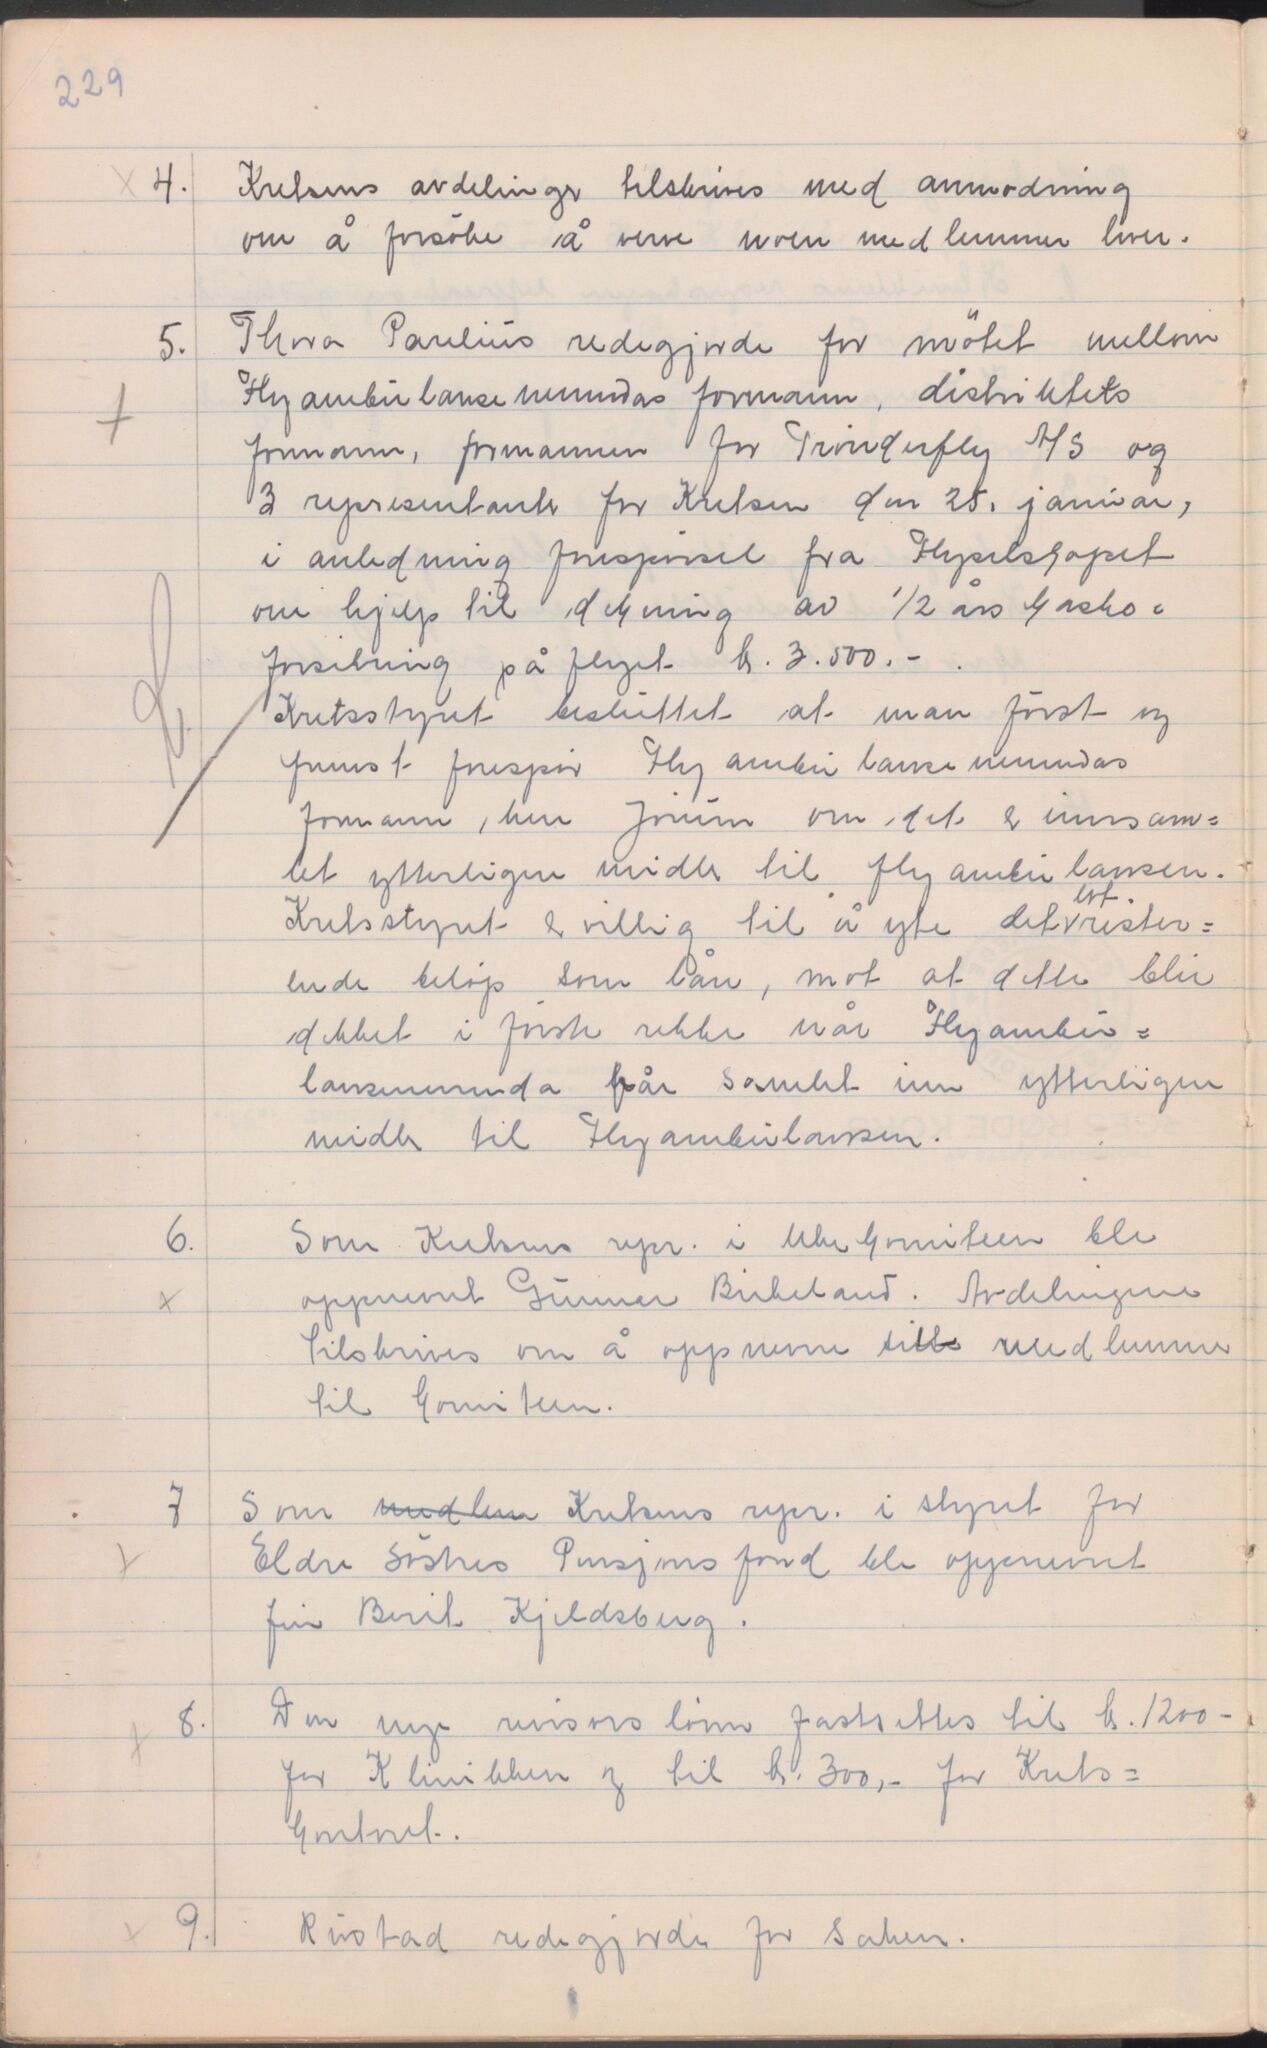 229
4. Kretsens avdelinger tilskrives med anmodning
om å forsöke å verve noen medlemmer hver.
5. Thora Parelius redegjorde for mötet mellom
Flyambulansenemndas formann, distriktets
formann, formannen for Trönderfly A/S og
3 representanter for Kretsen den 25. januar,
i anledning forespörsel fra Flyselskapet
om hjelp til dekning av 1/2 års kasko=
forsikring på flyet kr. 3.500.-.
Kretsstyret besluttet at man först og
fremst forespör Flyambulansenemndas
formann, herr Jörum om det er innsam=
let ytterligere midler til flyambulansen.
Kretsstyret er villig til å yte det evt. rester=
ende belöp som lån, mot at dette blir
dekket i förste rekke når Flyambu=
lansenemnda får samlet inn ytterligere
midler til Flyambulansen.
6. Som Kretsens repr. i Ukekomiteen ble
oppnevnt Gunnar Birkeland. Avdelingene
tilskrives om å oppnevne sitt medlemmer
til komiteen.
7 Som medlem Kretsens repr. i styret for
Eldre Söstres Pensjonsfond ble oppnevnt
fru Berit Kjeldsberg.
8. Den nye revisors lönn fastsettes til kr. 1200-
for Klinikken og til kr. 300,- for Krets=
kontoret.
9. Rustad redegjorde for saken.